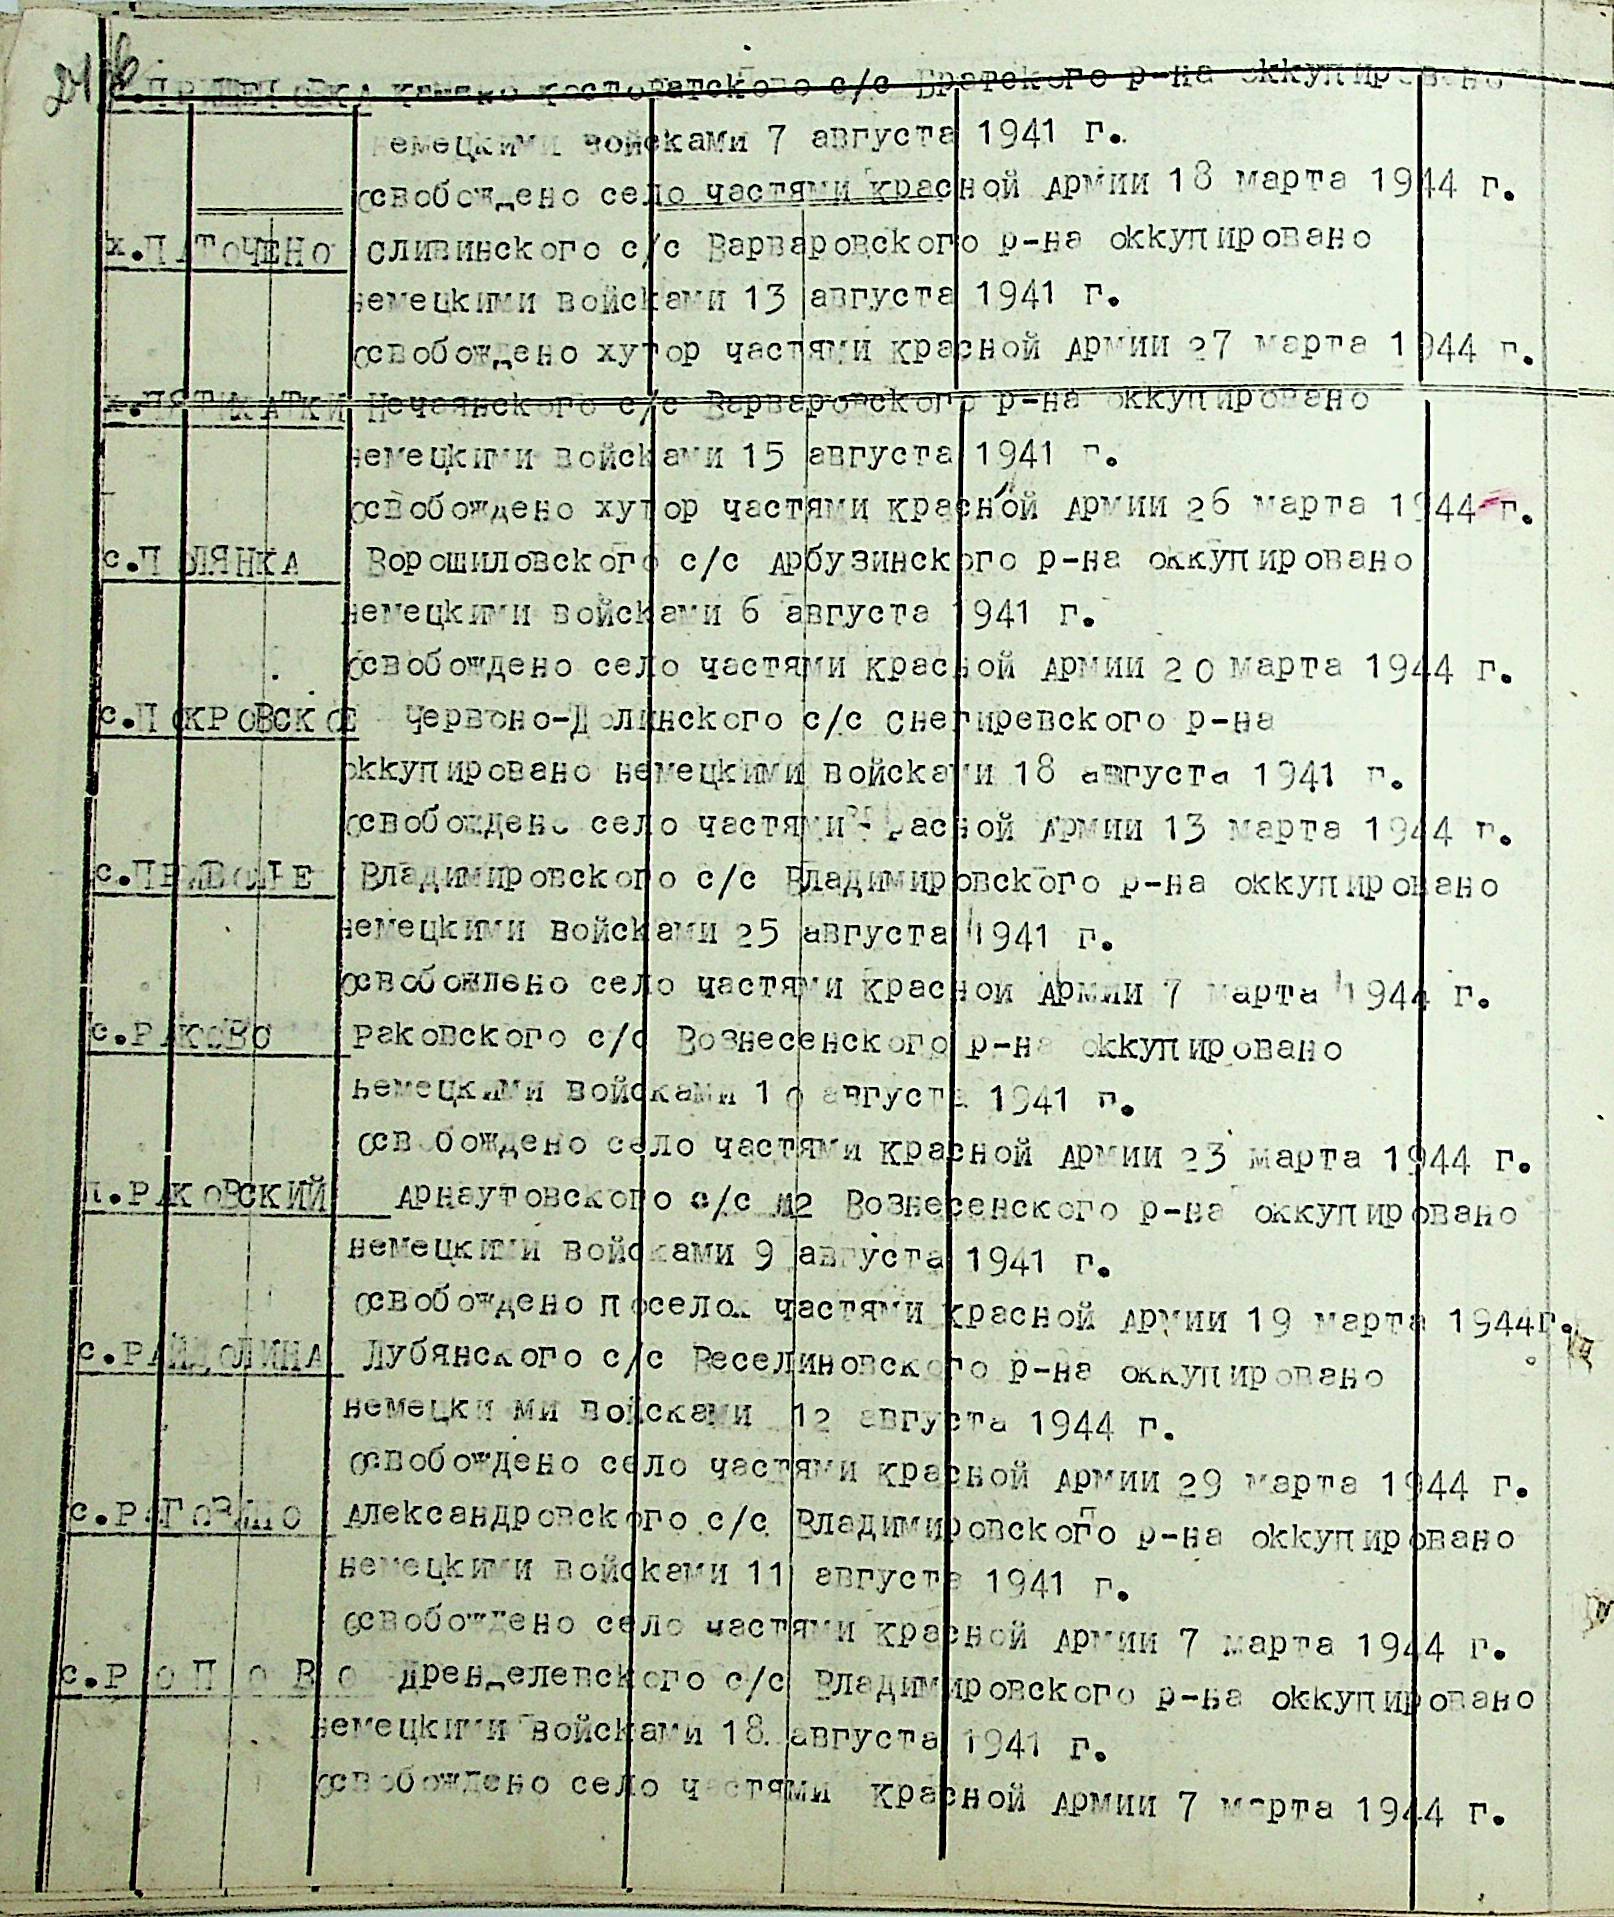 с.ПРИЩЕПОВКА Камяно костоватского с/с Братского р-на оккупировано
немецкими войсками 7 августа 1941 г.
освобождено село частями красной армии 18 марта 1944 г.
х.ПАТОЧЕНО Сливинского с/с Варваровского р-на оккупировано
немецкими войсками 13 августа 1941 г.
освобождено хутор частями красной армии 27 марта 1944 г.
х.ПЯТИХАТКИ Нечаянского с/с Варваровского р-на оккупировано
немецкими войсками 15 августа 1941 г.
освобождено хутор частями красной армии 26 марта 1944 г.
с.ПОЛЯНКА Ворошиловского с/с Арбузинского р-на оккупировано
немецкими войсками 6 августа 1941 г.
освобождено село частями красной армии 20 марта 1944 г.
с.ПОКРОВСКОЕ Червоно-Долинского с/с Снегиревского р-на
оккупировано немецкими войсками 18 августа 1941 г.
освобождено село частями Красной Армии 13 марта 1944 г.
с.ПРИВОЛЬЕ Владимировского с/с Владимировского р-на оккупировано
немецкими войсками 25 августа 1941 г.
освобождено село частями красной армии 7 марта 1944 г.
с.РАКОВО Раковского с/с Вознесенского р-на оккупировано
немецкими войсками 10 августа 1941 г.
освобождено село частями красной армии 23 марта 1944 г.
п.РАКОВСКИЙ Арнаутовского с/с №2 Вознесенского р-на оккупировано
немецкими войсками 9 августа 1941 г.
освобождено поселок частями красной армии 19 марта 1944г.
с.РАЙДОЛИНА Лубянского с/с Веселиновского р-на оккупировано
немецки ми войсками 12 августа 1944 г.
освобождено село частями красной армии 29 марта 1944 г.
с.РАГОВАНО Александровского с/с Владимировского р-на оккупировано
немецкими войсками 11 августа 1941 г.
освобождено село частями красной армии 7 марта 1944 г.
с.Р О П О В О Дренделевского с/с Владимировского р-на оккупировано
немецкими войсками 18 августа 1941 г.
освобождено село частями красной армии 7 марта 1944 г.